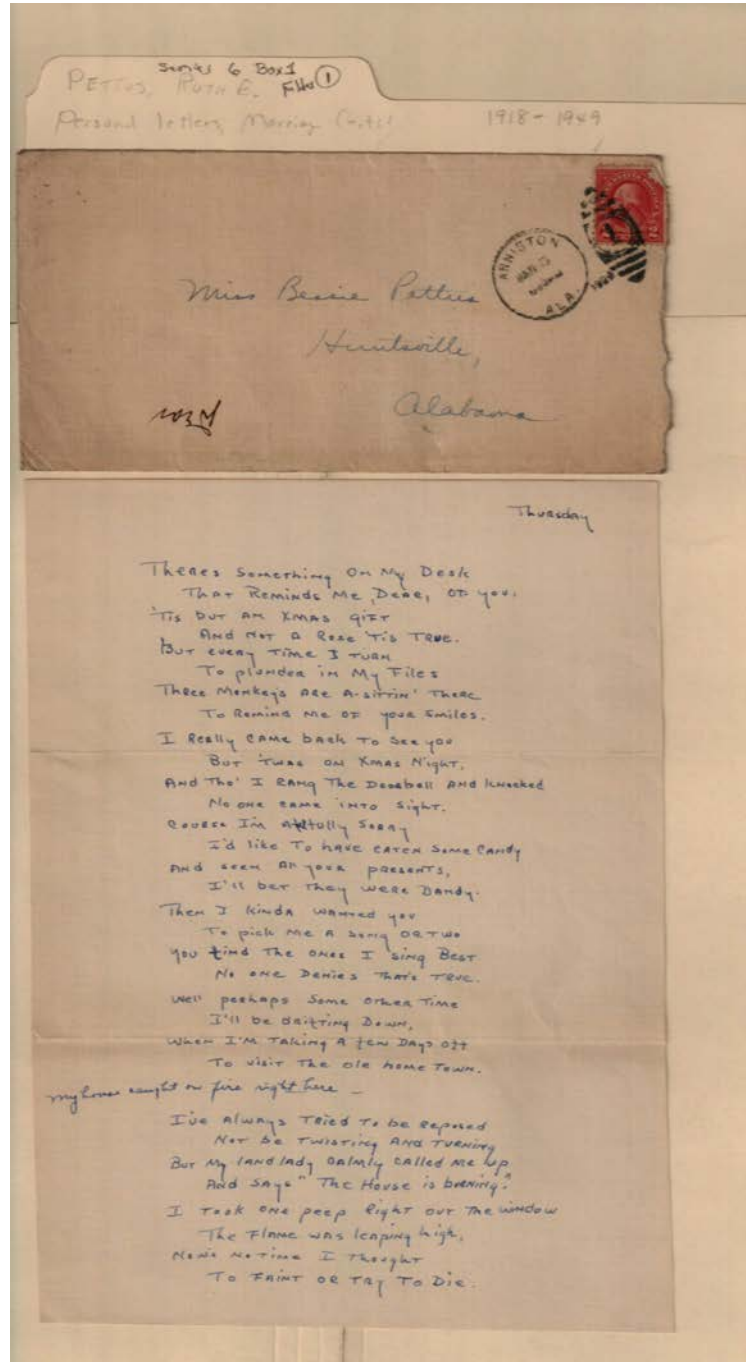 Series 6 Box 1
PETTUS, RUTH E. F#w 1
Personal letters, 1918-1949
ANNISTON
ALA.
Miss Bessie Pettus
Huntsville,
Alabama
Thursday
Theres Something On My Desk
That Reminds Me, Dear, Of you.
'Tis but an Xmas gift
And Not A Rose 'Tis True.
But every Time I Turn
To plunder in My Files
Three Monkeys Are A-sittin' There
To Remind Me of your Smiles.
I Really came back To See you
But 'Twas on Xmas Night.
And Tho' I Rang The Doorbell And knocked
No one came into Sight.
Course I'm Awfully Sorry
I'd like To have eaten Some Candy
And seen All your presents,
I'll bet They were Dandy.
Then I kinda wanted you
To pick Me A Song or Two
You find The ones I sing Best
No one Denies That's True.
Well perhaps Some other Time
I'll be drifting Down,
When I'm Taking A few Days off
To visit The ole home Town.
My house caught on fire right here -
I've Always Tried To be Reposed
Not be Twisting And Turning
But My landlady calmly called Me up
And Says "The House is burning".
I Took one peep Right out The window
The Flame was leaping high,
No Time I Thought
To Faint or Try To Die.